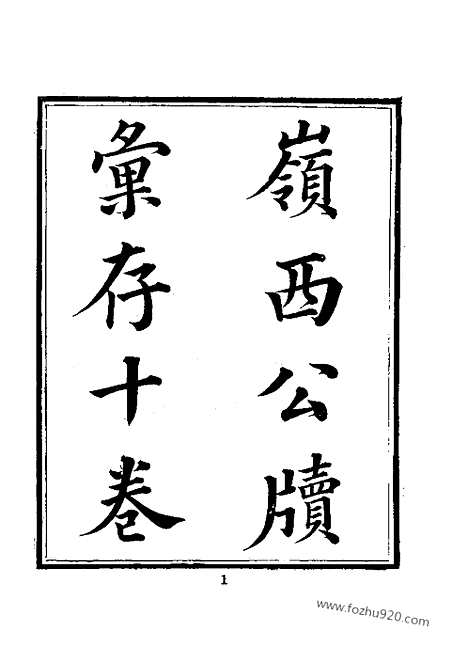 嶺西公牘
彙存十卷
1
www.fozhu920.com